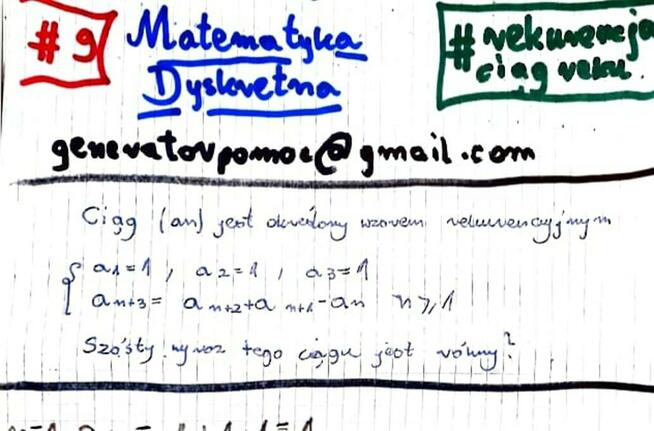 #9
Matematyka
Dyskretna
#rekurencja
ciąg reku.
generatorpomoc@gmail.com
Ciąg (an) jest określony wzorem rekurencyjnym
{ a1=1, a2=1, a3=1
an+3= an+2+an+1-an n≥1
Szósty wyraz tego ciągu jest równy?